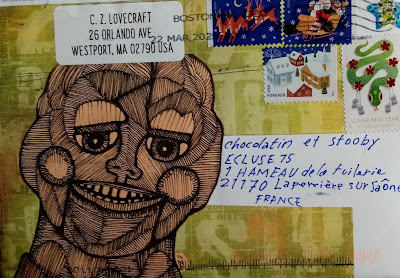 C. Z. LOVECRAFT
26 ORLANDO AVE
WESTPORT, MA 02790 USA
BOSTON
22 MAR 202
FOREVER
LUNAR NEW YEAR
chocolatin et stooby
ECLUSE 75
1 HAMEAU de la tuilerie
21170 Laperrière sur Saône
FRANCE